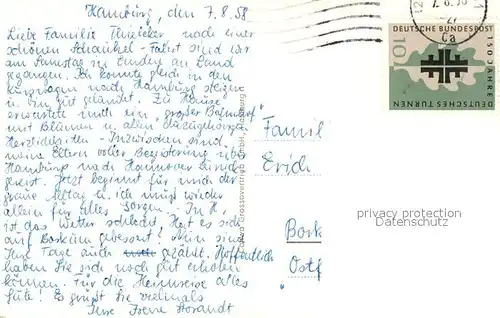 Hamburg, den 7.8.58
Liebe Familie Thielcker nach einer
schönen Schaukel-Fahrt sind wir
am Samstag in Emden an Land
gegangen. Ich konnte gleich in den
nach Hamburg steigen
u. bin gut gelandet. Zu Hause
erwartete mich ein großer Bahnhof
mit Blumen u. allen dazugehörigen
Herzlichkeiten - Inzwischen sind
meine Eltern voller Begeisterung über
Hamburg nach Hannover
gereist. Jetzt beginnt für mich der
graue Alltag u. ich muß wieder
allein für Alles sorgen. In H.
ist das Wetter schlecht. Hat es sich
auf Borkum gebessert? Nun sind
Ihre Tage auch gezählt. Hoffentlich
haben Sie sich noch gut erholen
können. Für die Heimreise alles
Gute! Es grüßt Sie vielmals
Ihre Irene
Famil
Erich
Bork
Ostf
7. 8. 58
DEUTSCHE BUNDESPOST
10
150 JAHRE
DEUTSCHES TURNEN
privacy protection
watermark